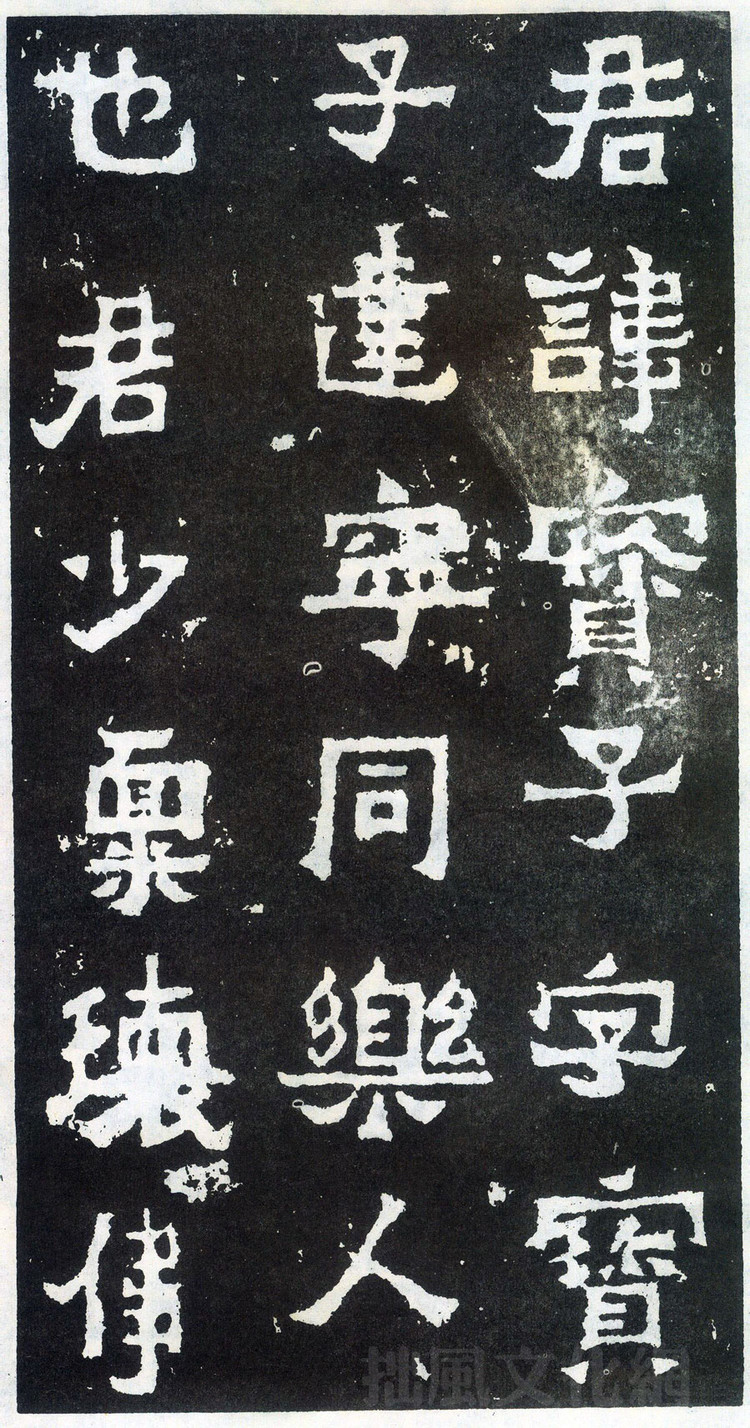 君諱寶子字寶
子建寧同樂人
也君少稟瓌偉
拙風文化網